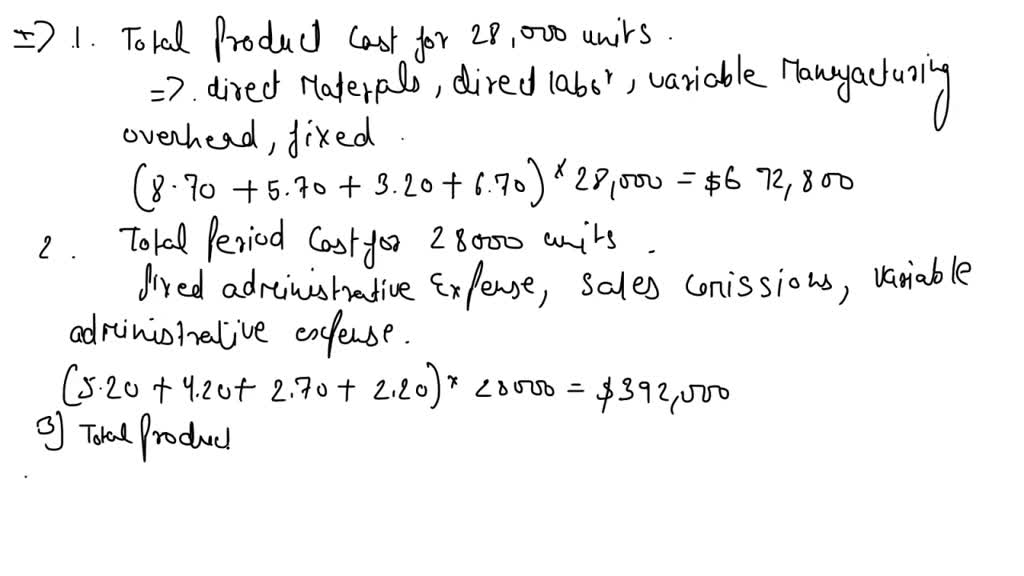 => 1. Total Product Cost for 28,000 units.
=> direct Materials, direct labor, variable Manufacturing
overhead, fixed.
(8.70 + 5.70 + 3.20 + 6.70) × 28,000 = $672,800
2. Total Period Cost for 28000 units.
fixed administrative Expense, Sales comissions, variable
administrative expense.
(5.20 + 4.20 + 2.70 + 2.20) × 28000 = $392,000
3) Total Product